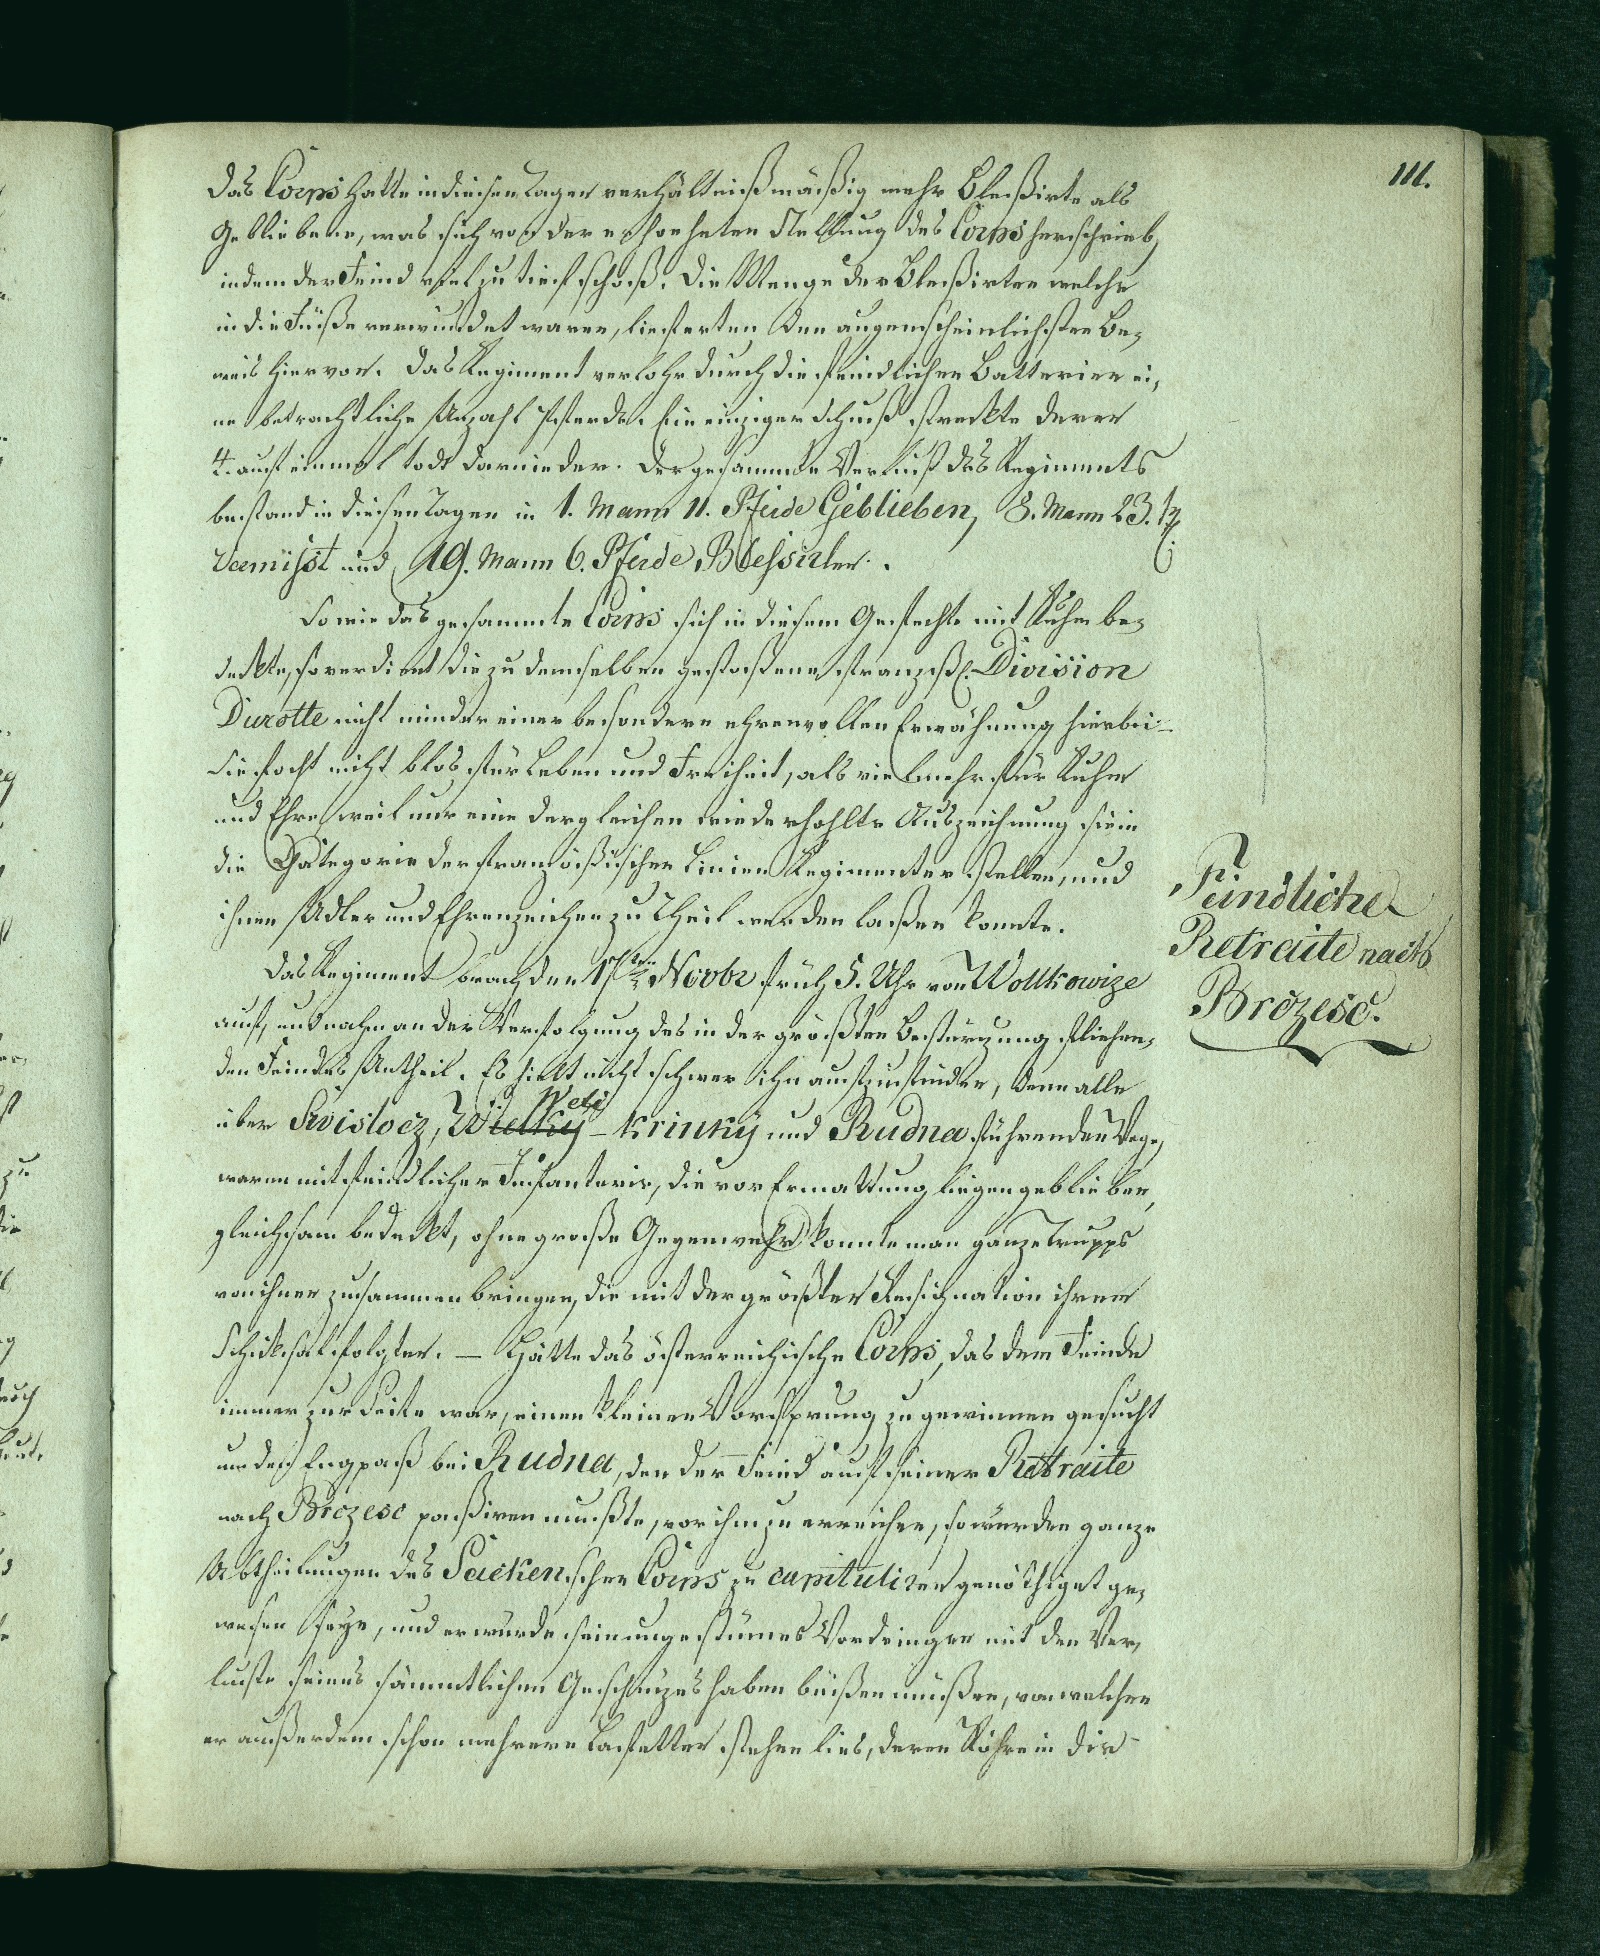 111.
Das Corps hatte in diesen Tagen verhältnißmäßig mehr Bleßirte als
Gebliebene, was sich von der erhoeheten Stellung des Corps herschrieb,
indem der Feind viel zu tief schoß. Die Menge der Bleßirten welche
in die Füße verwundet waren, lieferten den augenscheinlichsten Be-
weis hiervon. Das Regiment verlohr durch die feindlichen Batterien ei-
ne betrachtliche Anzahl Pferde. Ein einziger Schuß streckte derer
4. auf einmal todt darnieder. Der gesammte Verlust des Regiments
bestand in diesen Tagen in 1. Mann 11. Pferde Geblieben, 8. Mann 23.
Vermißt und 19. Mann 6. Pferde Blessirter.
So wie das gesammte Corps sich in diesem Gefechte mit Ruhm be-
deckte, so verdient die zu demselben gestoßene französ. Division
Durotte nicht minder einer besondern ehrenvollen Erwähnung hierbei
Sie focht nicht blos für Leben und Freiheit, als vielmehr für Ruhm
und Ehre, weil nur eine dergleichen wiederhohlte Auszeichnung sie in
die Categorie der französischen Linien Regimenter stellen, und
ihnen Adler und Ehrenzeichen zu Theil werden laßen konnte.
Das Regiment brach den 17ten Novbr früh 5. Uhr von Wollkowize
auf, und nahm an der Verfolgung des in der größten Bestürzung fliehen-
den Feindes Antheil. Es hielt nicht schwer ihn aufzufinden, denn alle
über Swislocz, Wielky Weli - Krinky und Rudna führenden Wege,
waren mit feindlicher Infanterie, die vor Ermattung liegen geblieben,
gleichsam bedeckt, ohne große Gegenwehr konnte man ganze Trupps
von ihnen zusammen bringen, die mit der größten Resignation ihrem
Schicksal folgten. — Hätte das österreichische Corps, das dem Feinde
immer zur Seite war, einen kleinen Vorsprung zu gewinnen gesucht
um den Engpaß bei Rudna, den der Feind auf seiner Retraite
nach Brozesc paßiren mußte, vor ihm zu erreichen, so würden ganze
Abtheilungen des Sackenschen Corps zu capituliren genöthiget ge-
wesen seyn, und er würde sein ungestümes Vordringen mit den Ver-
luste seines sämmtlichen Geschüzes haben büßen müßen, von welchen
er außerdem schon mehrere Lafetten stehen lies, deren Röhre in die
Feindliche
Retraite nach
Brozesc.